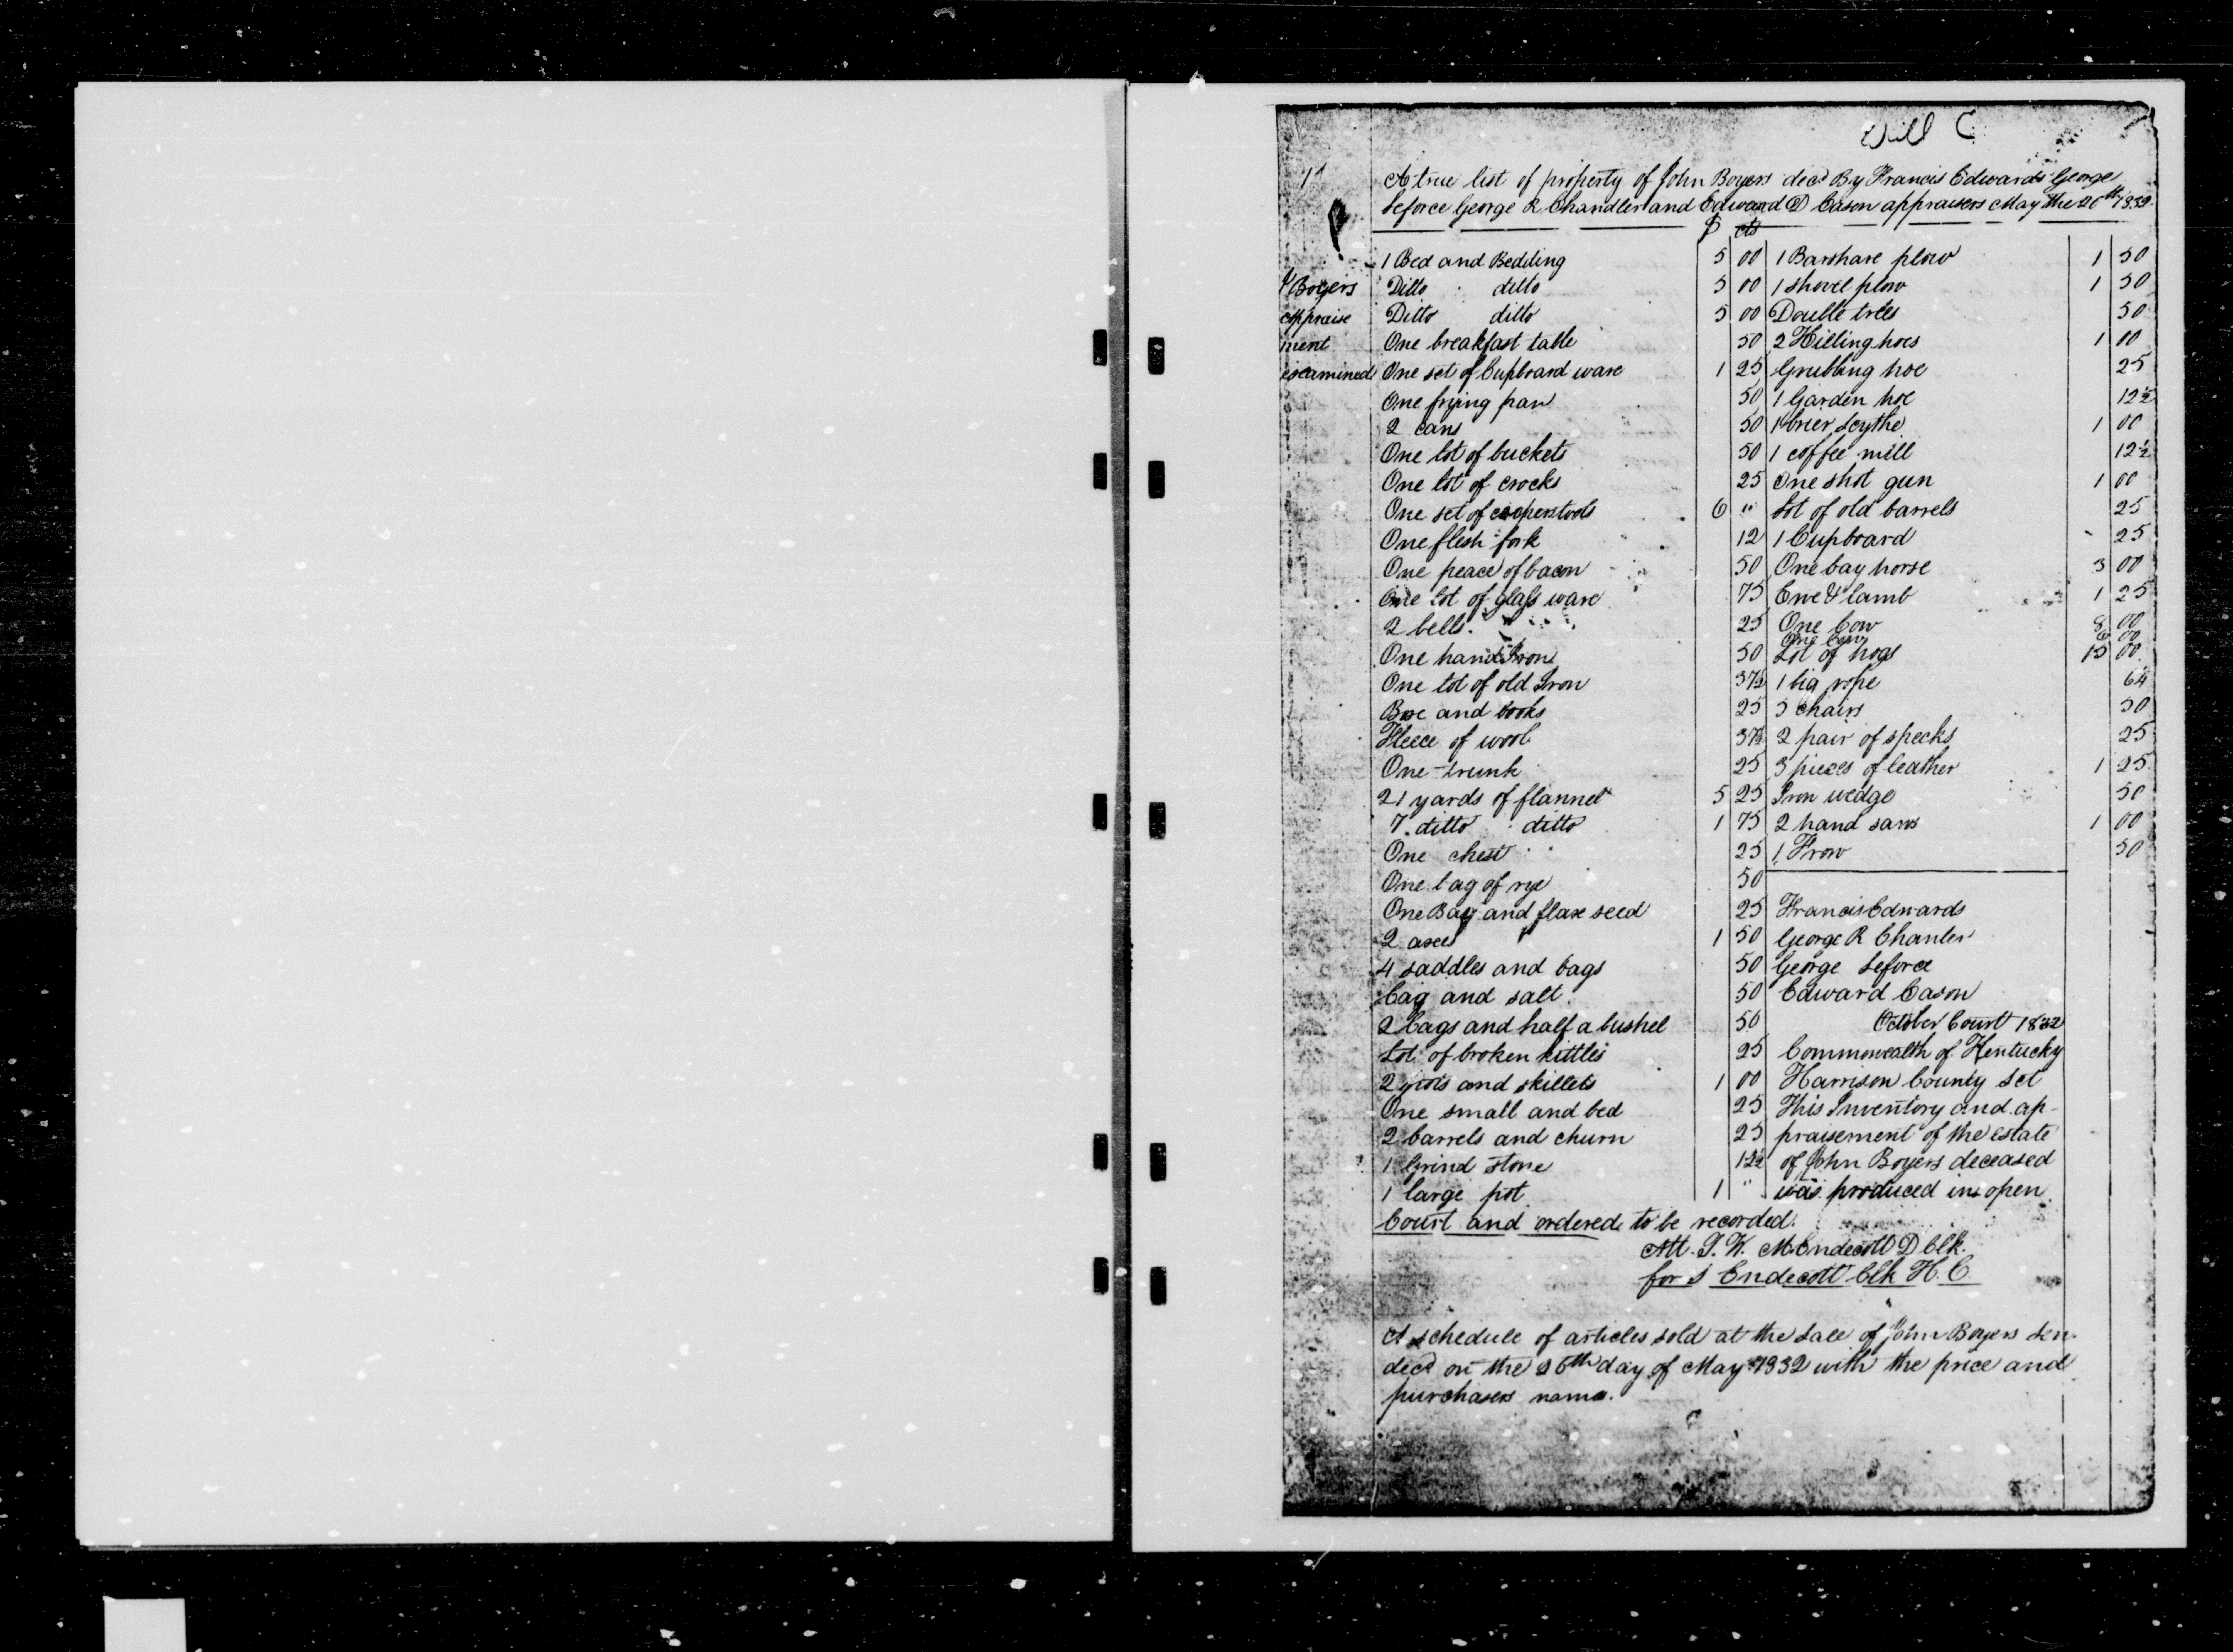 Will C
1
A true list of property of John Boyers decd By Francis Edwards George
Leforce George R Chandler and Edward D Cason appraisers May the 26th 1832
$ cts
J Boyers
appraise
ment
examined
1 Bed and Bedding 5 00
Ditto ditto 5 00
Ditto ditto 5 00
One breakfast table 50
One set of Cupboard ware 1 25
One frying pan 50
2 cans 50
One lot of buckets 50
One lot of crocks 25
One set of cooperstools 6 "
One flesh fork 12
One peace of bacon 50
One lot of glass ware 75
2 bells 25
One hand Iron 50
One lot of old Iron 37½
Box and books 25
Fleece of wool 37½
One trunk 25
21 yards of flannel 5 25
7 ditto ditto 1 75
One chest 25
One bag of rye 50
One Bag and flax seed 25
2 axes 1 50
4 saddles and bags 50
bag and salt 50
2 bags and half a bushel 50
Lot of broken kittles 25
2 pots and skillets 1 00
One small and bed 25
2 barrels and churn 25
1 Grind stone 12½
1 large pot 1 "
1 Barshare plow 1 50
1 shovel plow 1 50
Double trees 50
2 Hilling hoes 1 00
Grubbing hoe 25
1 Garden hoe 12½
1 brier Scythe 1 00
1 coffee mill 12½
One shot gun 1 00
Lot of old barrels 25
1 Cupboard 25
One bay horse 3 00
Ewe & lamb 1 25
One Cow 8 00
One Cow 6 00
Lot of hogs 15 00
1 big rope 6¼
5 chairs 50
2 pair of specks 25
3 pieces of leather 1 25
Iron wedge 50
2 hand saws 1 00
1 Frow 50
Francis Edwards
George R Chanler
George Leforce
Edward Cason
October Court 1832
Commonwealth of Kentucky
Harrison County Sct
This Inventory and ap-
praisement of the estate
of John Boyers deceased
was produced in open
Court and ordered to be recorded.
Att. P. W. M. Endecott D Clk.
for S Endecott Clk H. C.
A schedule of articles sold at the sale of John Boyers Sen.
decd on the 26th day of May 1832 with the price and
purchasers name.